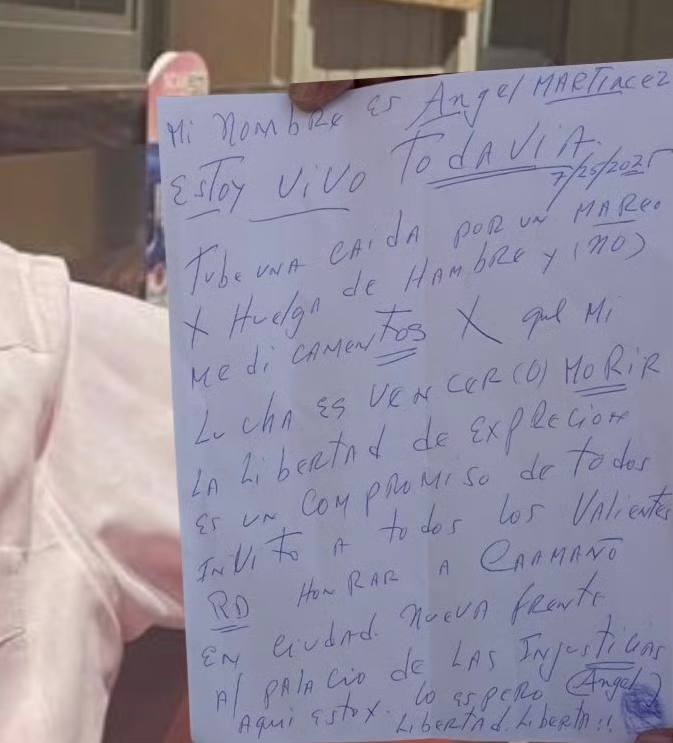 Mi NombRe es Angel MARTinez
ESTOY ViVO TodAViA.
7/25/2025
Tube UNA CAidA POR UN MAReo
X HuelgA de HAMbRe y (NO)
MediCAMenTos X que Mi
LuchA es VENCER (O) MORiR
LA LibertAd de EXPRecioN
es UN COMPROMiSo de Todos
INViTo A todos los VAlientes
RD HONRAR A CAAMAÑO
EN Ciudad NuevA fRente
Al PALACio de LAS INjusticiAS
Aqui estoy. lo esPeRo (Angel)
LibertAd. LibertA!!